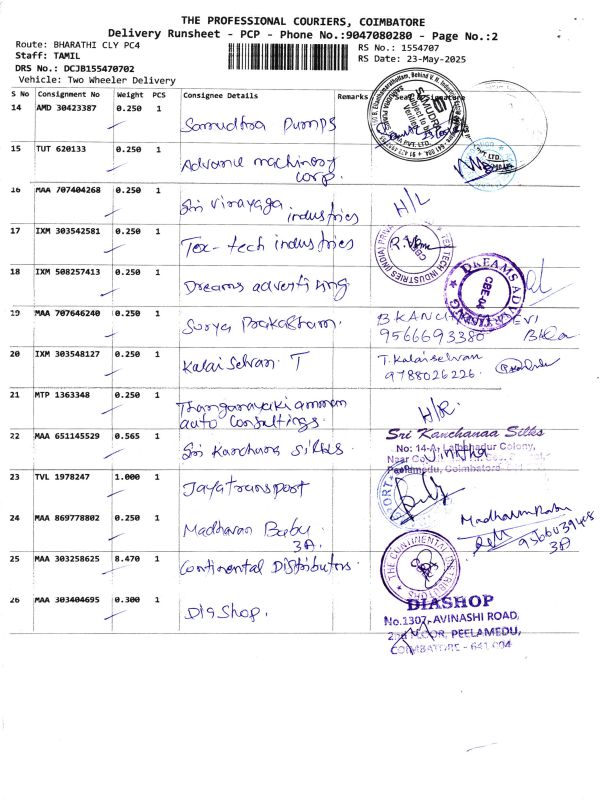 THE PROFESSIONAL COURIERS, COIMBATORE
Delivery Runsheet - PCP - Phone No.:9047080280 - Page No.:2
Route: BHARATHI CLY PC4
RS No.: 1554707
Staff: TAMIL
RS Date: 23-May-2025
DRS No.: DCJB155470702
Vehicle: Two Wheeler Delivery
S No Consignment No Weight PCS Consignee Details Remarks Seal Signature
14 AMD 30423387 0.250 1
Samudhra Pumps
15 TUT 620133 0.250 1
Advance machinery
corp.
16 MAA 707404268 0.250 1
Sri Vinayaga industries
H/L
17 IXM 303542581 0.250 1
Tex-tech industries
18 IXM 508257413 0.250 1
Dreams advertising
DREAMS ADVERTISING
CBE-04
19 MAA 707646240 0.250 1
Surya Prakasham.
9566693380
20 IXM 303548127 0.250 1
Kalai Selvan T
T. Kalaiselvan
9788026226
21 MTP 1363348 0.250 1
Thanganayaki amman
auto consultings.
H/R
22 MAA 651145529 0.565 1
Sri Kanchana silks
Sri Kanchanaa Silks
No: 14-A, Lalbahadur Colony,
Peelamedu, Coimbatore
23 TVL 1978247 1.000 1
Jayatransport
24 MAA 869778802 0.250 1
Madhavan Babu
3A.
Madhavan Babu
9566039408
3A
25 MAA 303258625 8.470 1
Continental Distributors.
THE CONTINENTAL DISTRIBUTORS
26 MAA 303404695 0.300 1
DiaShop.
DIASHOP
No.1307, AVINASHI ROAD,
2nd FLOOR, PEELAMEDU,
COIMBATORE - 641 004